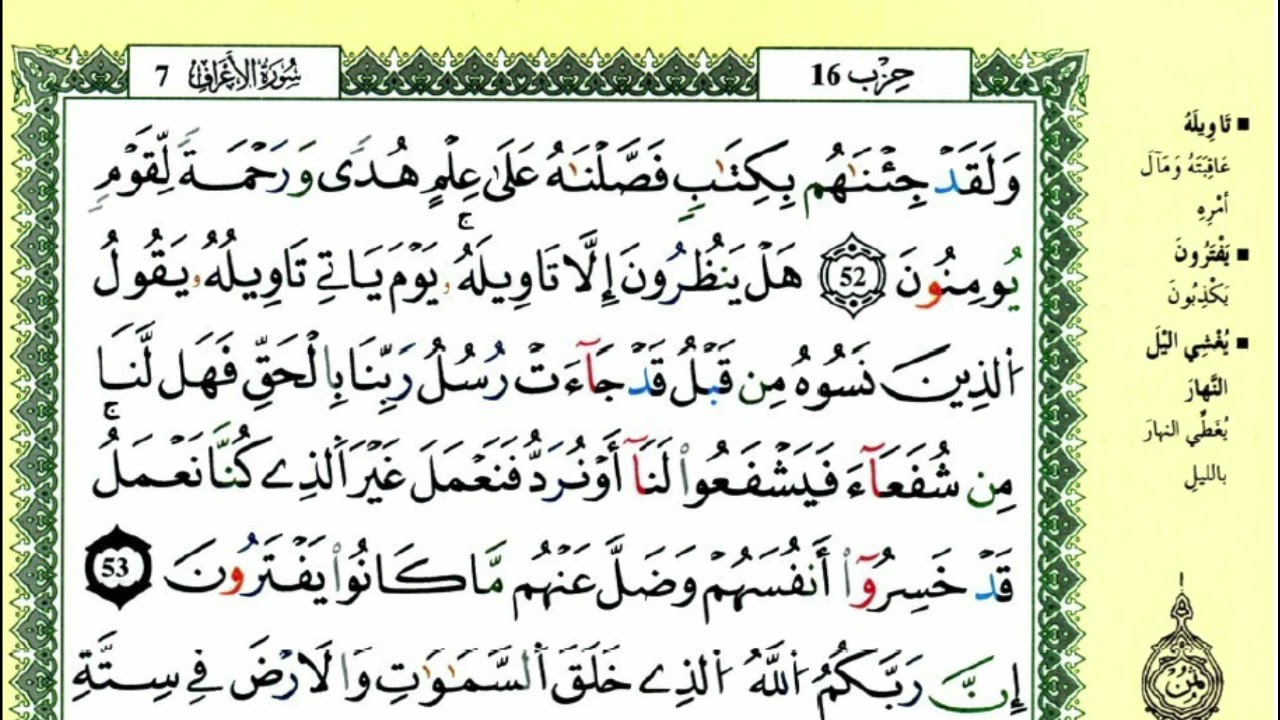 حِزْب 16
سُورَةُ الأَعْرَافِ 7
وَلَقَدْ جِئْنَٰهُم بِكِتَٰبٖ فَصَّلْنَٰهُ عَلَىٰ عِلْمٍ هُدٗى وَرَحْمَةٗ لِّقَوْمٖ
يُومِنُونَ 52 هَلْ يَنظُرُونَ إِلَّا تَاوِيلَهُۥۚ يَوْمَ يَاتِے تَاوِيلُهُۥ يَقُولُ
اُ۬لذِينَ نَسُوهُ مِن قَبْلُ قَدْ جَآءَتْ رُسُلُ رَبِّنَا بِالْحَقِّ فَهَل لَّنَا
مِن شُفَعَآءَ فَيَشْفَعُواْ لَنَآ أَوْ نُرَدُّ فَنَعْمَلَ غَيْرَ اَ۬لذِے كُنَّا نَعْمَلُۚ
قَدْ خَسِرُوٓاْ أَنفُسَهُمْ وَضَلَّ عَنْهُم مَّا كَانُواْ يَفْتَرُونَ 53
إِنَّ رَبَّكُمُ اُ۬للَّهُ اُ۬لذِے خَلَقَ اَ۬لسَّمَٰوَٰتِ وَالَارْضَ فِے سِتَّةِ
■ تَاوِيلَهُ
عَاقِبَتَهُ وَمَآلَ
أَمْرِهِ
■ يَفْتَرُونَ
يَكْذِبُونَ
■ يُغْشِي الليْلَ
النَّهارَ
يُغَطِّي النهارَ
بالليلِ
ثمن